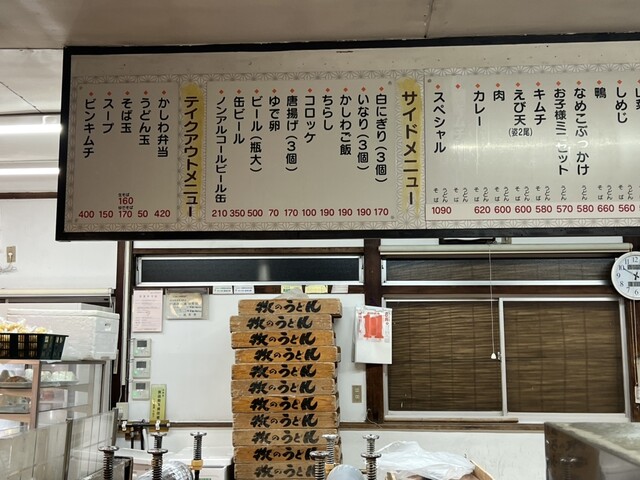 しめじ うどん そば 560
鴨 うどん そば 660
なめこぶっかけ うどん そば 580
お子様ミニセット 570
キムチ うどん そば 580
えび天 (姿2尾) うどん そば 600
肉 うどん そば 600
カレー うどん そば 620
スペシャル うどん そば 1090
サイドメニュー
白にぎり(3個) 170
いなり(3個) 190
かしわご飯 190
ちらし 190
コロッケ 100
唐揚げ(3個) 170
ゆで卵 70
ビール(瓶大) 500
缶ビール 350
ノンアルコールビール缶 210
テイクアウトメニュー
かしわ弁当 420
うどん玉 50
そば玉 生そば 160 ゆでそば 170
スープ 150
ビンキムチ 400
牧のうどん
牧のうどん
牧のうどん
牧のうどん
牧のうどん
牧のうどん
牧のうどん
牧のうどん
牧のうどん
牧のうどん
牧のうどん